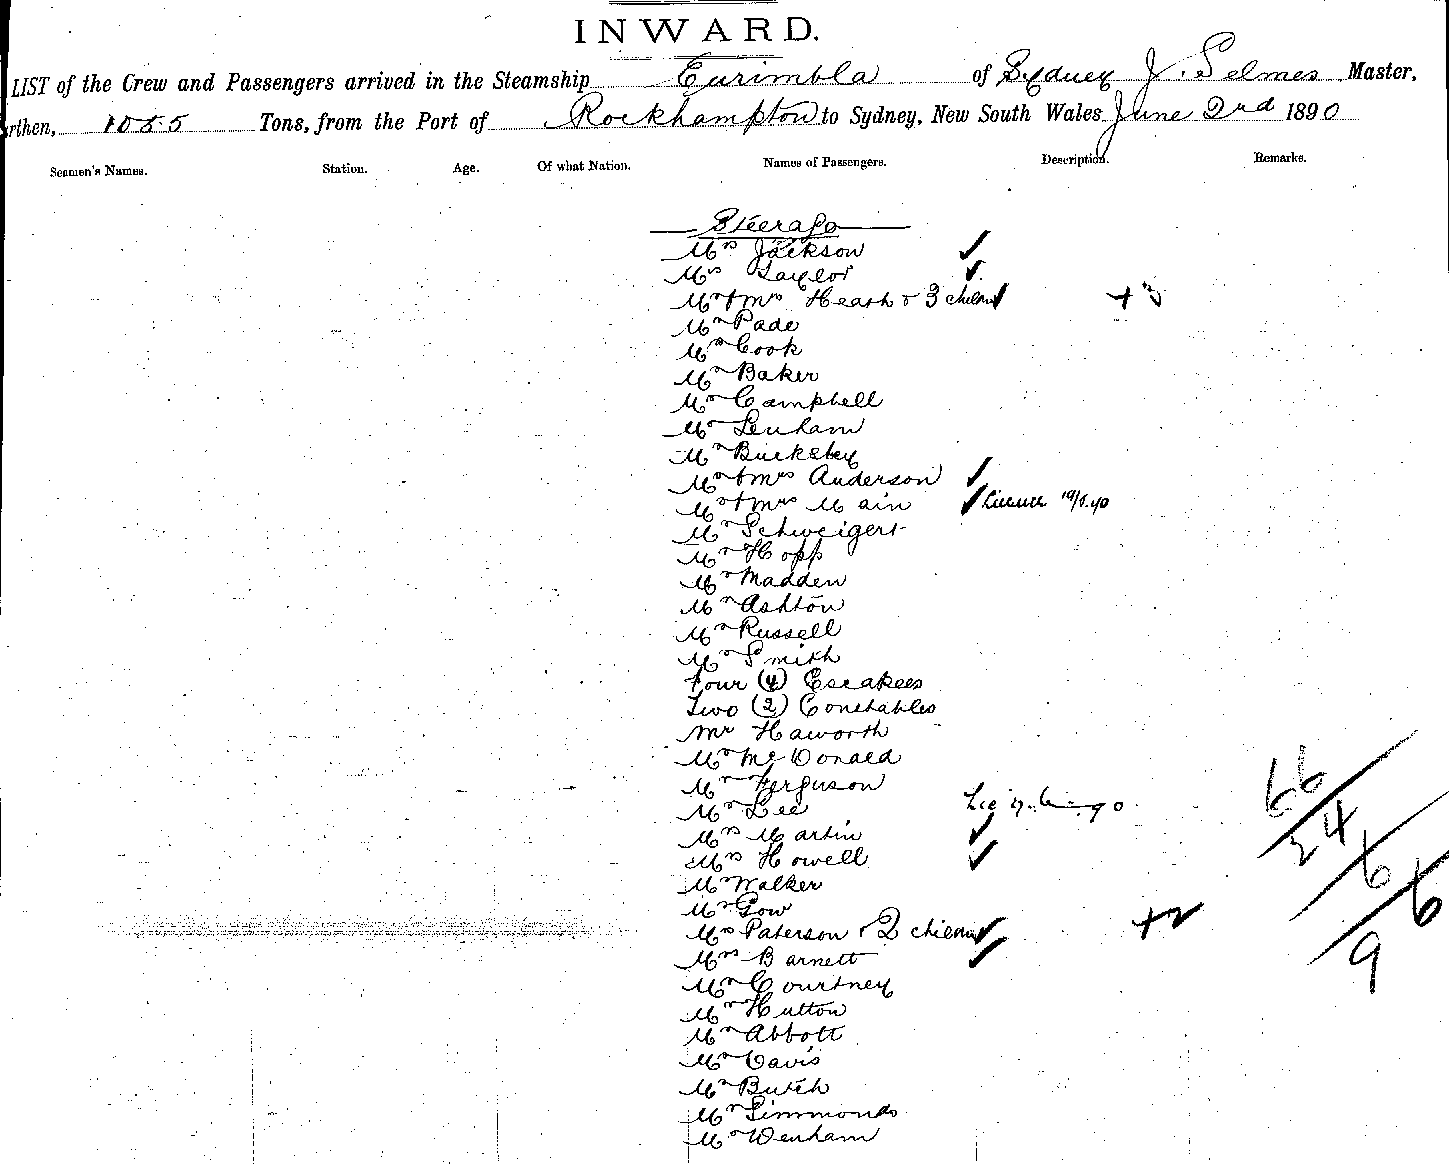 INWARD.
LIST of the Crew and Passengers arrived in the Steamship Eurimbla of Sydney J. Selmes Master,
rthen, 1055 Tons, from the Port of Rockhampton to Sydney, New South Wales June 2nd 1890
Seamen's Names. Station. Age. Of what Nation. Names of Passengers. Description. Remarks.
Steerage
Mrs Jackson ✓
Mrs Taylor ✓
Mr & Mrs Heash & 3 children ✓ + 3
Mr Pade
Mr Cook
Mr Baker
Mr Campbell
Mr Lenham
Mr Buckeley
Mr & Mrs Anderson ✓
Mr & Mrs Main ✓
Mr Schweigert
Mr Hopp
Mr Madden
Mr Ashton
Mr Russell
Mr Smith
Four (4) Escapees
Two (2) Constables
Mr Haworth
Mr McDonald
Mr Ferguson
Mr Lee
Mrs Martin ✓
Mrs Howell ✓
Mr Walker
Mr Gow
Mrs Paterson & 2 children ✓ + 2
Mrs Barnett ✓
Mr Courtney
Mr Hutton
Mr Abbott
Mr Davis
Mr Butch
Mr Simmonds
Mr Wenham
66
34
6
6
9